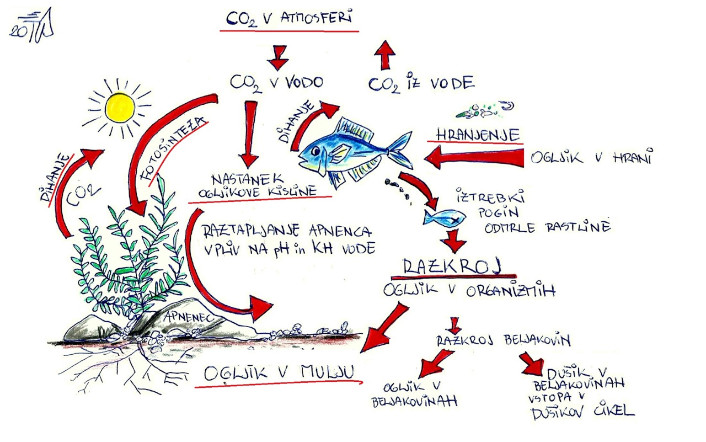 CO2 V ATMOSFERI
CO2 V VODO
CO2 IZ VODE
DIHANJE
FOTOSINTEZA
DIHANJE
CO2
HRANJENJE
OGLJIK V HRANI
NASTANEK
OGLJIKOVE KISLINE
IZTREBKI
POGIN
ODMRLE RASTLINE
RAZTAPLJANJE APNENCA
VPLIV NA pH in KH VODE
RAZKROJ
OGLJIK V ORGANIZMIH
APNENEC
RAZKROJ BELJAKOVIN
OGLJIK V MULJU
OGLJIK V
BELJAKOVINAH
DUŠIK V
BELJAKOVINAH
VSTOPA V
DUŠIKOV CIKEL